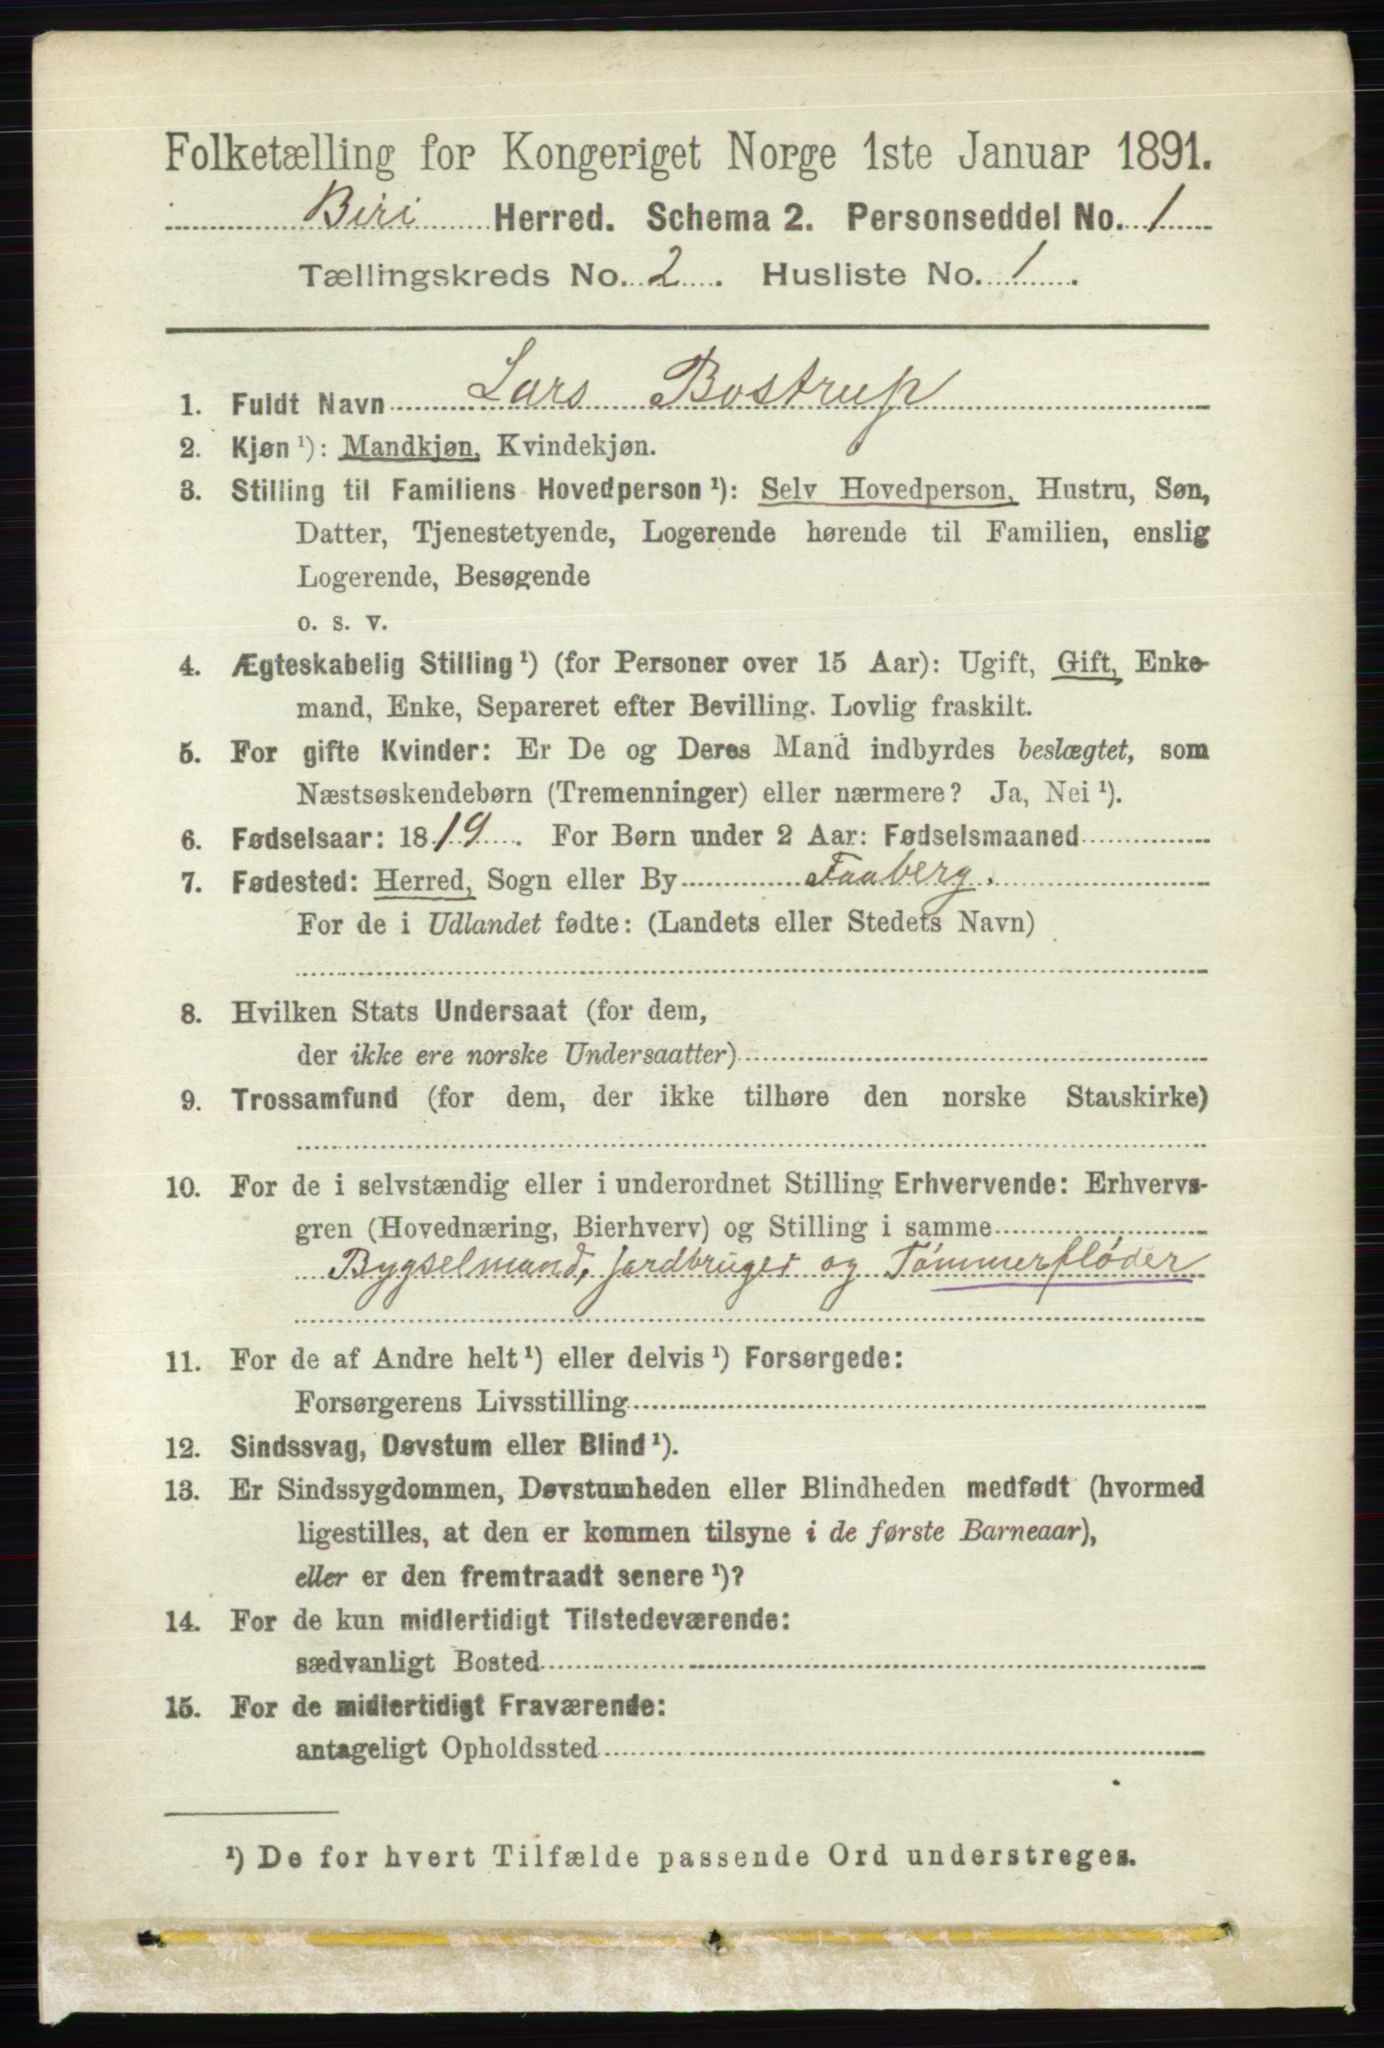 Folketælling for Kongeriget Norge 1ste Januar 1891.
Biri Herred. Schema 2. Personseddel No. 1
Tællingskreds No. 2. Husliste No. 1.
1. Fuldt Navn Lars Bostrup
2. Kjøn ¹): Mandkjøn, Kvindekjøn.
3. Stilling til Familiens Hovedperson ¹): Selv Hovedperson, Hustru, Søn,
Datter, Tjenestetyende, Logerende hørende til Familien, enslig
Logerende, Besøgende
o. s. v.
4. Ægteskabelig Stilling ¹) (for Personer over 15 Aar): Ugift, Gift, Enke-
mand, Enke, Separeret efter Bevilling. Lovlig fraskilt.
5. For gifte Kvinder: Er De og Deres Mand indbyrdes beslægtet, som
Næstsøskendebørn (Tremenninger) eller nærmere? Ja, Nei ¹).
6. Fødselsaar: 1819. For Børn under 2 Aar: Fødselsmaaned
7. Fødested: Herred, Sogn eller By Faaberg.
For de i Udlandet fødte: (Landets eller Stedets Navn)
8. Hvilken Stats Undersaat (for dem,
der ikke ere norske Undersaatter)
9. Trossamfund (for dem, der ikke tilhøre den norske Statskirke)
10. For de i selvstændig eller i underordnet Stilling Erhvervende: Erhvervs-
gren (Hovednæring, Bierhverv) og Stilling i samme
Bygselmand, jordbruger og Tömmerflöder
11. For de af Andre helt ¹) eller delvis ¹) Forsørgede:
Forsørgerens Livsstilling
12. Sindssvag, Døvstum eller Blind ¹).
13. Er Sindssygdommen, Døvstumheden eller Blindheden medfødt (hvormed
ligestilles, at den er kommen tilsyne i de første Barneaar),
eller er den fremtraadt senere ¹)?
14. For de kun midlertidigt Tilstedeværende:
sædvanligt Bosted
15. For de midlertidigt Fraværende:
antageligt Opholdssted
¹) De for hvert Tilfælde passende Ord understreges.